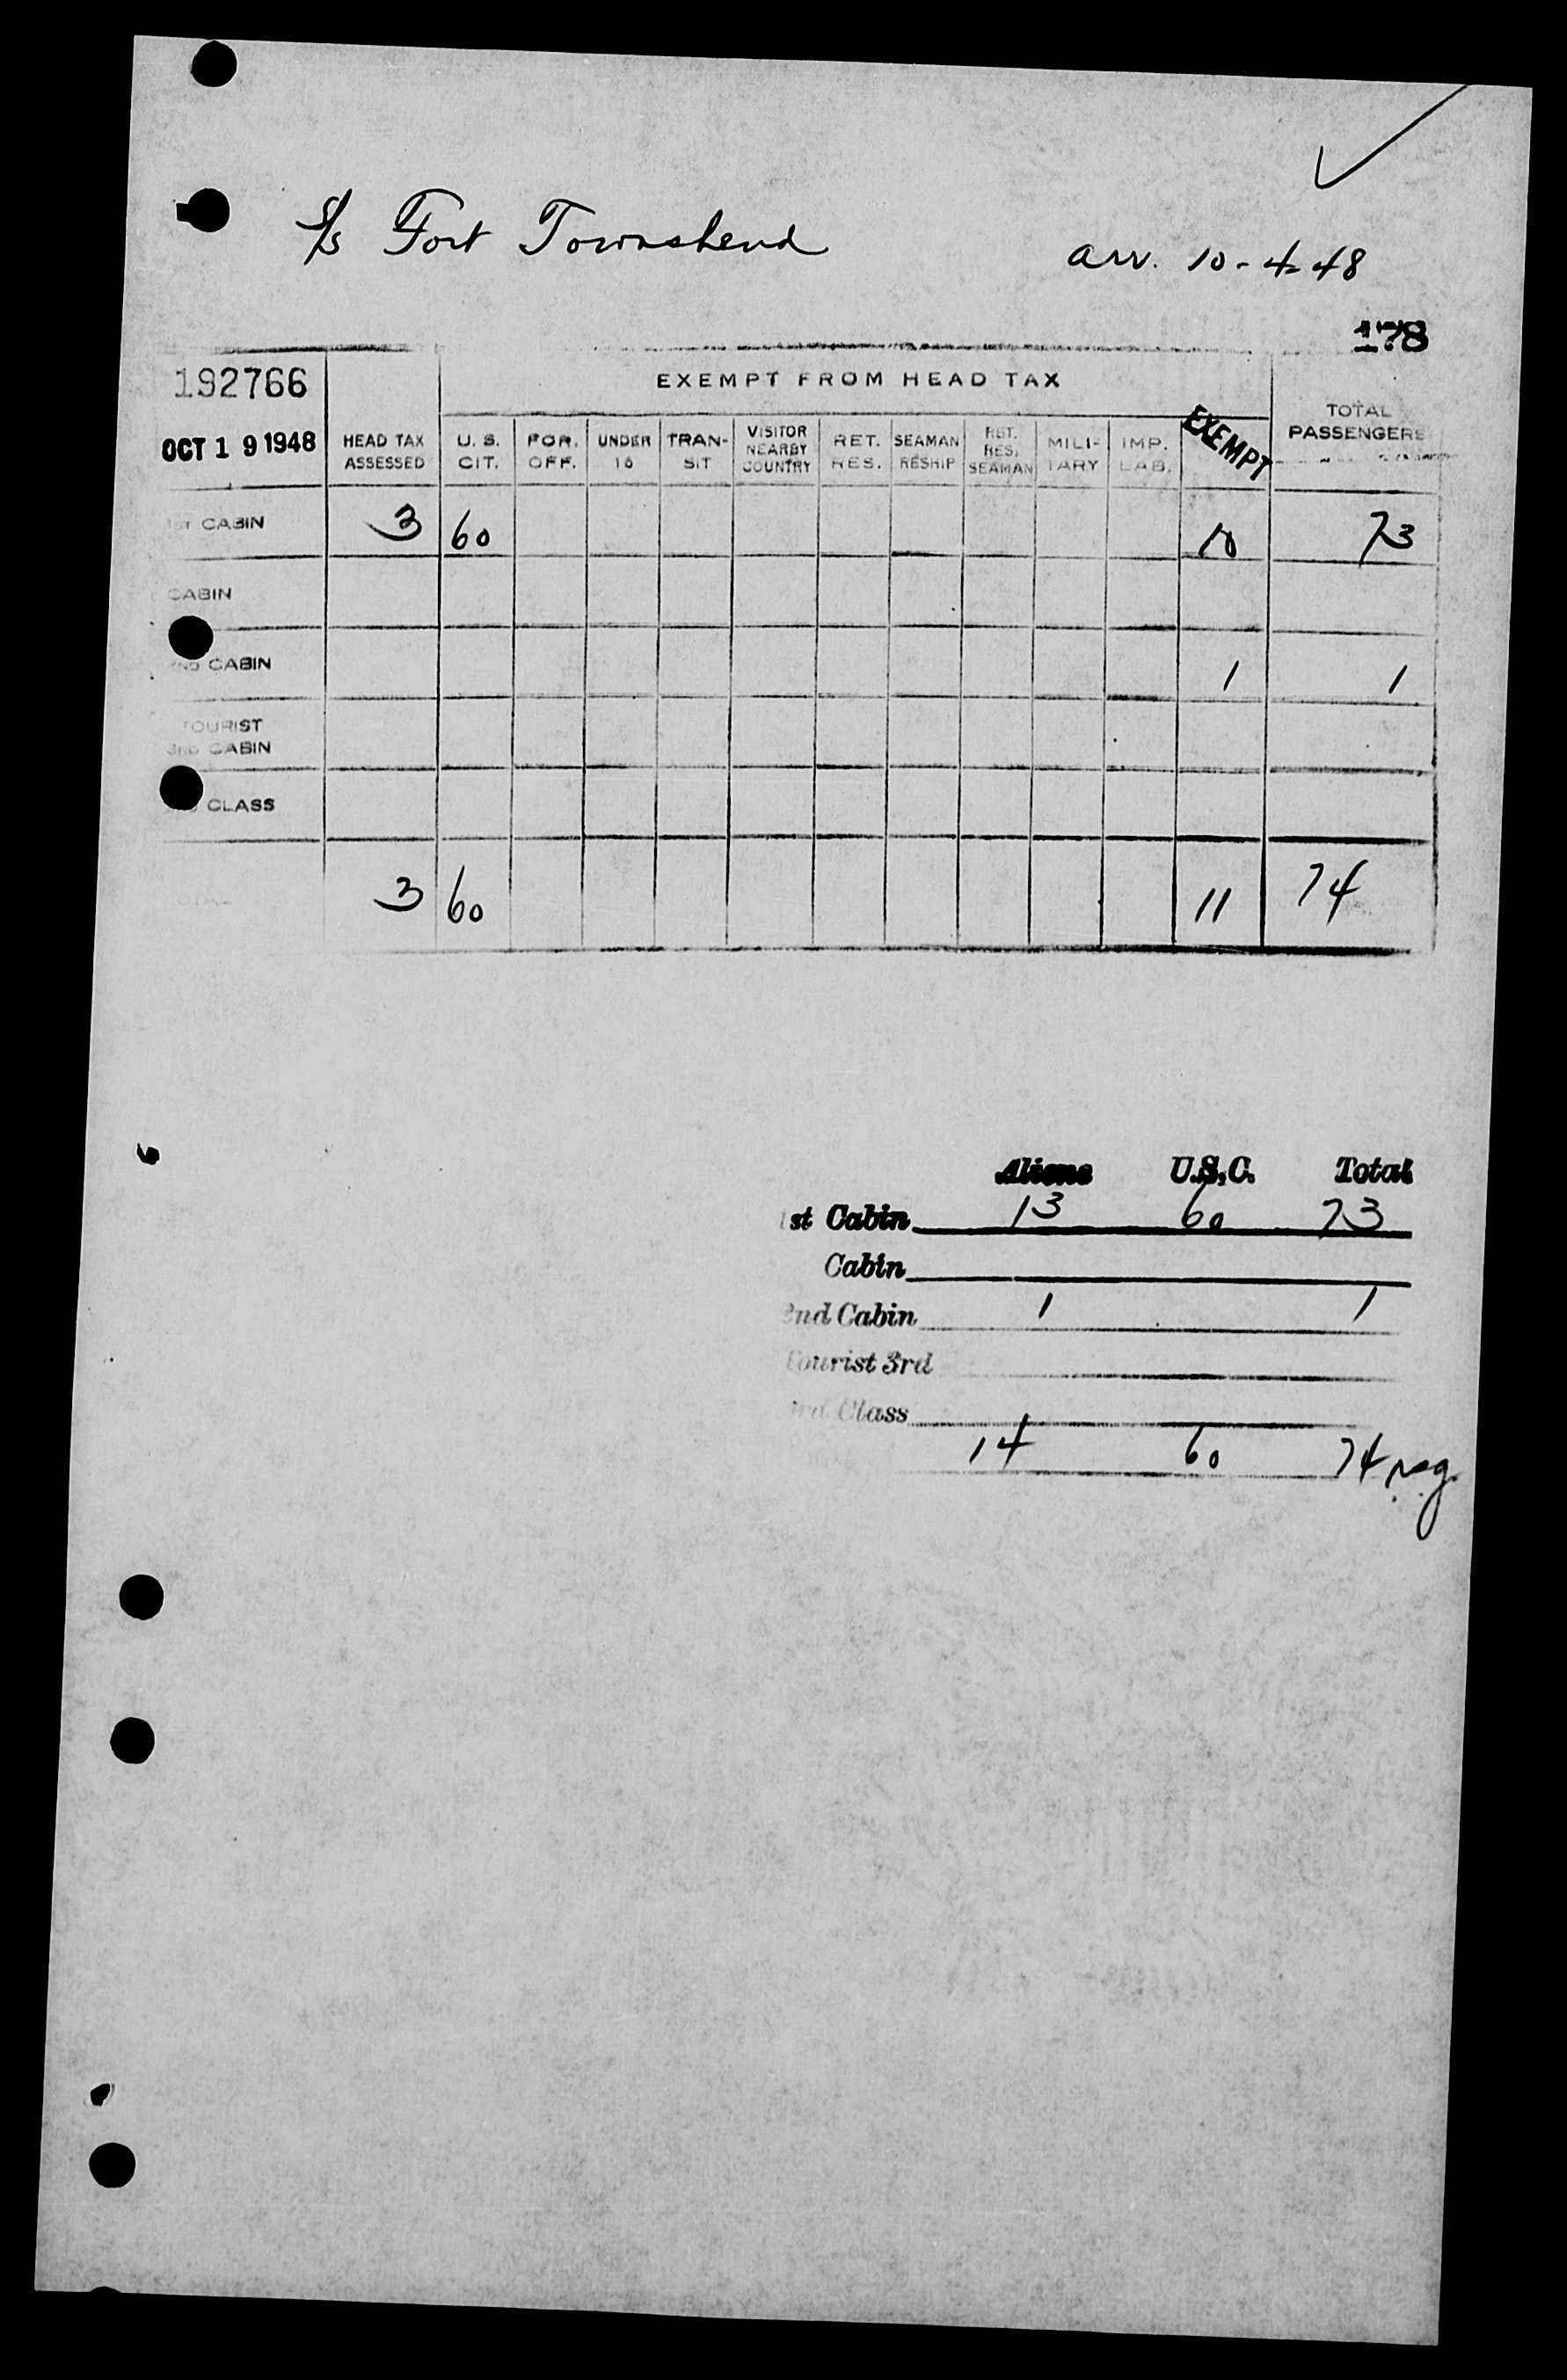 S/S Fort Townshend
arr. 10-4-48
178
192766
OCT 19 1948
HEAD TAX ASSESSED
EXEMPT FROM HEAD TAX
TOTAL PASSENGERS
U. S. CIT.
FOR. OFF.
UNDER 16
TRAN- SIT
VISITOR NEARBY COUNTRY
RET. RES.
SEAMAN RESHIP
RET. RES. SEAMAN
MILI- TARY
IMP. LAB.
EXEMPT
1ST CABIN 3 60 10 73
CABIN
2ND CABIN 1 1
TOURIST
3RD CABIN
CLASS
TOTAL 3 60 11 74
Aliens U.S.C. Total
1st Cabin 13 60 73
Cabin
2nd Cabin 1 1
Tourist 3rd
3rd Class
14 60 74